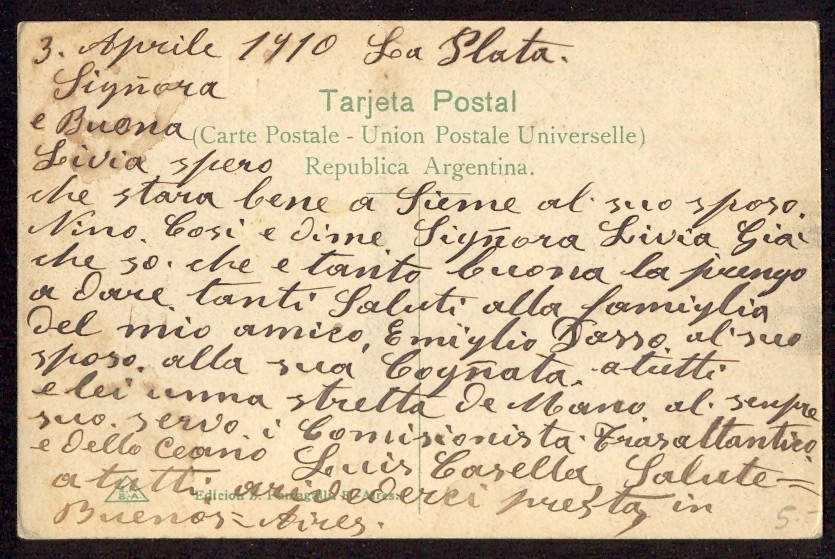 3. Aprile 1910 La Plata.
Sigñora
Tarjeta Postal
e Buona
(Carte Postale - Union Postale Universelle)
Livia spero
Republica Argentina.
che stara bene a Sieme al suo sposo.
Nino. Cosi e dime Sigñora Livia Gia
che so. che e tanto buona la prengo
a dare tanti Saluti alla famiglia
del mio amico, Emiglio Dasso, al suo
sposo. alla sua Cogñata. a tutti
e lei unna stretta de Mano al senpre
suo. servo i Comisionista. Trasaltantico
e dello Ceano Luis Casella Salute=
a tutti arivederci presta, in
Edicion B. Aires.
B.A.
Buenos=Aires.
5.-